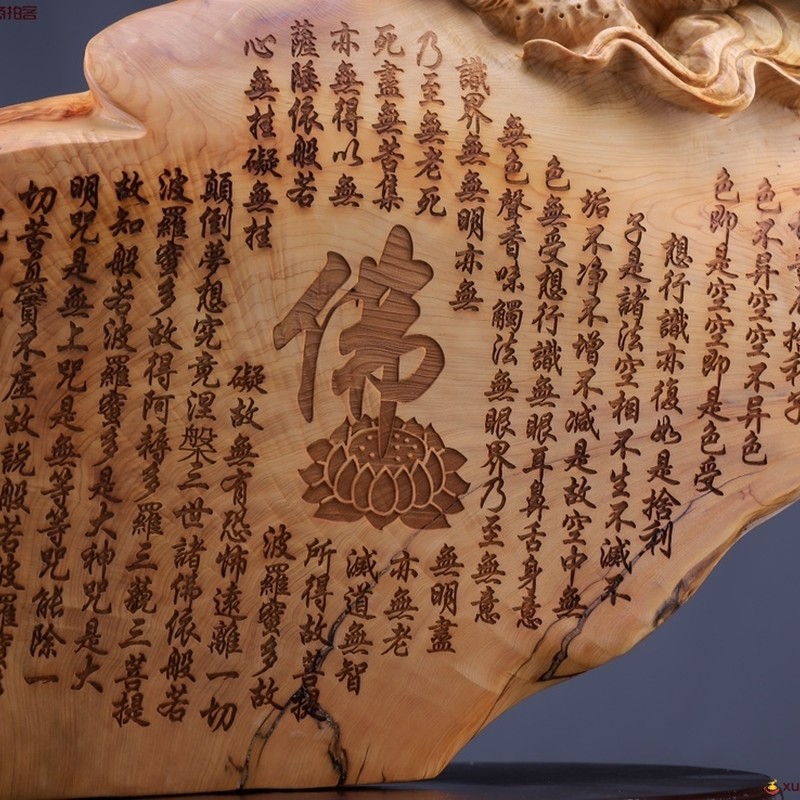 捨利子
色不异空空不异色
色即是空空即是色受
想行識亦復如是捨利
子是諸法空相不生不滅不
垢不净不增不减是故空中無
色無受想行識無眼耳鼻舌身意
無色聲香味觸法無眼界乃至無意
識界無無明亦無
無明盡
乃至無老死
亦無老
死盡無苦集
滅道無智
亦無得以無
所得故菩提
薩陲依般若
波羅蜜多故
佛
心無挂礙無挂
礙故無有恐怖遠離一切
顛倒夢想究竟涅槃三世諸佛依般若
波羅蜜多故得阿耨多羅三藐三菩提
故知般若波羅蜜多是大神咒是大
明咒是無上咒是無等等咒能除一
切苦真實不虛故說般若波羅
拍客
xu